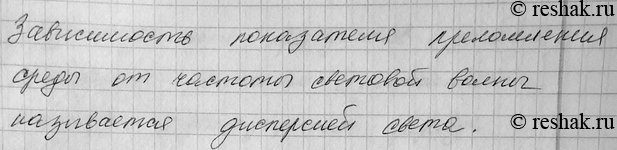 © reshak.ru
Зависимость показателя преломления
среды от частоты световой волны
называется дисперсией света.
© reshak.ru